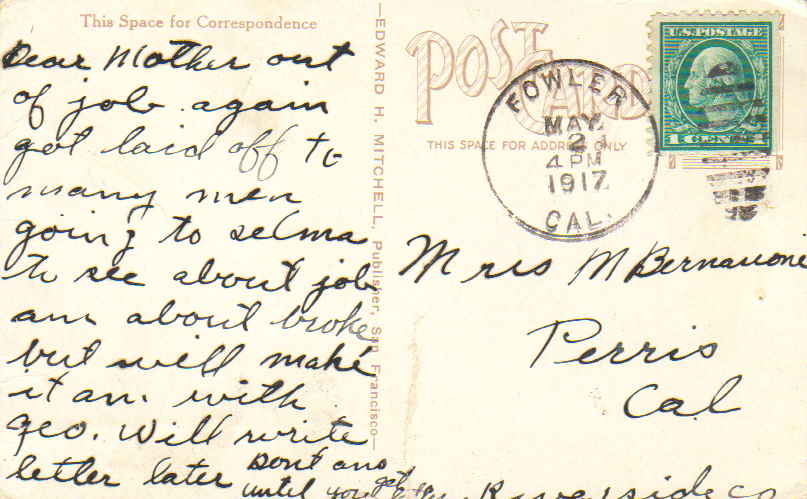 This Space for Correspondence
Dear Mother out
of job again
got laid off to
many men
going to selma
to see about job
am about broke
but will make
it am with
Geo. Will write
letter later Dont ans
until you get
—EDWARD H. MITCHELL, Publisher, San Francisco—
POST CARD
THIS SPACE FOR ADDRESS ONLY
U.S. POSTAGE
1 CENT
FOWLER
MAY
21
4 PM
1917
CAL.
Mrs M Bernasconi
Perris
Cal
Riverside co